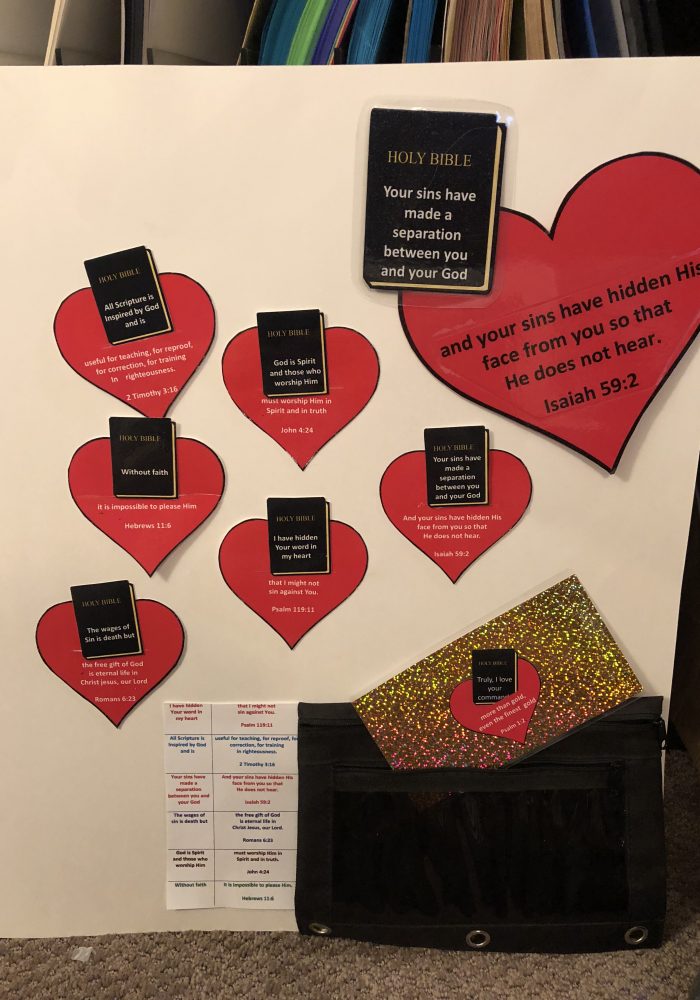 HOLY BIBLE
Your sins have
made a
separation
between you
and your God
and your sins have hidden His
face from you so that
He does not hear.
Isaiah 59:2
HOLY BIBLE
All Scripture is
Inspired by God
and is
useful for teaching, for reproof,
for correction, for training
in righteousness.
2 Timothy 3:16
HOLY BIBLE
God is Spirit
and those who
worship Him
must worship Him in
Spirit and in truth
John 4:24
HOLY BIBLE
Without faith
it is impossible to please Him
Hebrews 11:6
HOLY BIBLE
Your sins have
made a
separation
between you
and your God
And your sins have hidden His
face from you so that
He does not hear.
Isaiah 59:2
HOLY BIBLE
I have hidden
Your word in
my heart
that I might not
sin against You.
Psalm 119:11
HOLY BIBLE
The wages of
Sin is death but
the free gift of God
is eternal life in
Christ jesus, our Lord
Romans 6:23
HOLY BIBLE
Truly, I love
your
command
more than gold,
even the finest gold
I have hidden
Your word in
my heart
that I might not
sin against You.
Psalm 119:11
All Scripture is
Inspired by God
and is
useful for teaching, for reproof, for
correction, for training
in righteousness.
2 Timothy 3:16
Your sins have
made a
separation
between you and
your God
And your sins have hidden His
face from you so that
He does not hear.
Isaiah 59:2
The wages of
sin is death but
the free gift of God
is eternal life in
Christ Jesus, our Lord.
Romans 6:23
God is Spirit
and those who
worship Him
must worship Him in
Spirit and in truth.
John 4:24
Without faith
it is impossible to please Him.
Hebrews 11:6